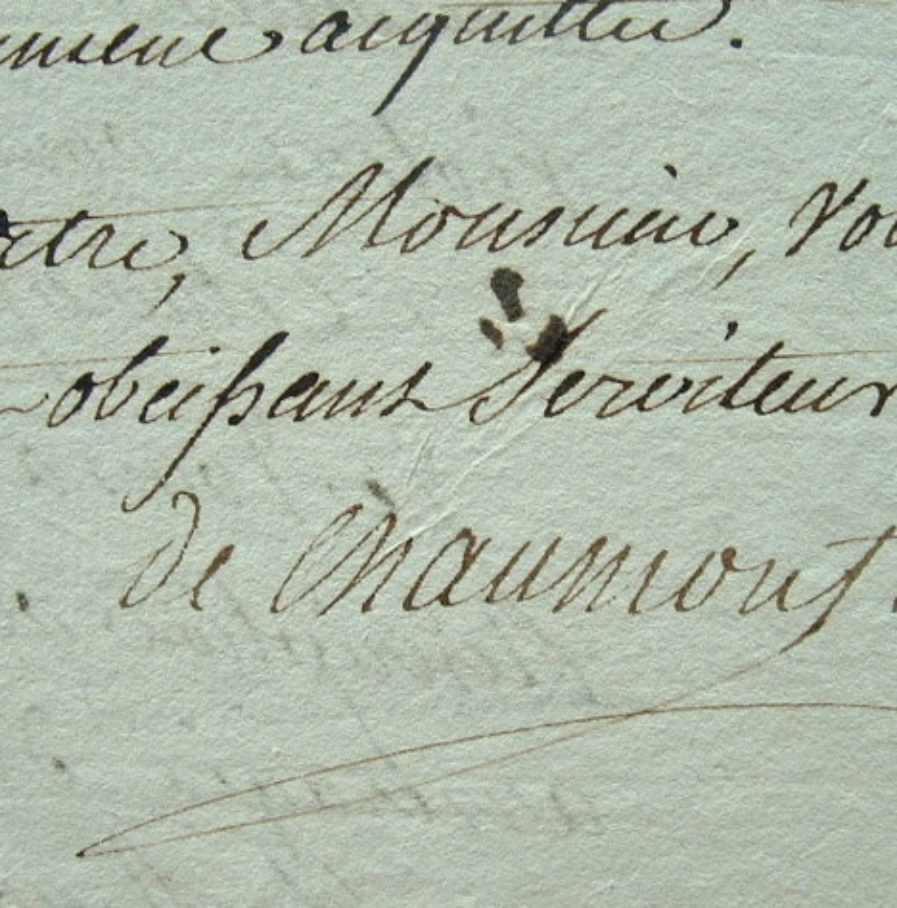 aiquitter.
etre, Monsieur, vo
obeissant Serviteur
de Chaumont.